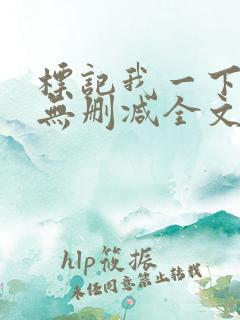 標記我一下
無刪減全文
hlp筱振
未经同意禁止转载